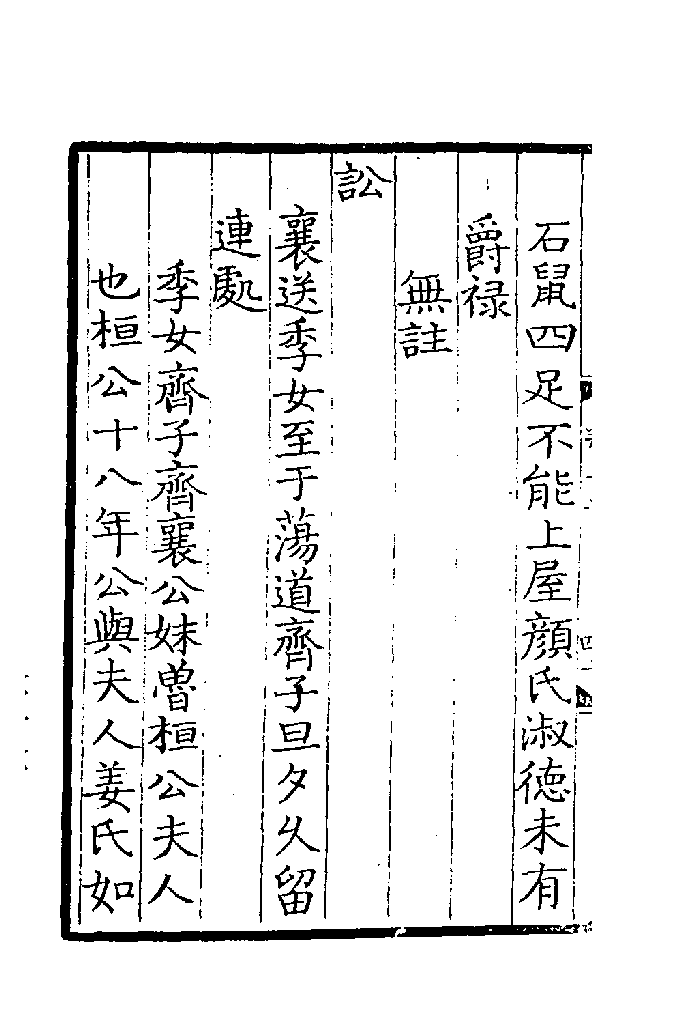 石鼠四足不能上屋顔氏淑徳未有
爵禄
無註
訟
襄送季女至于蕩道齊子旦夕久留
連處
季女齊子齊襄公妹魯桓公夫人
也桓公十八年公與夫人姜氏如